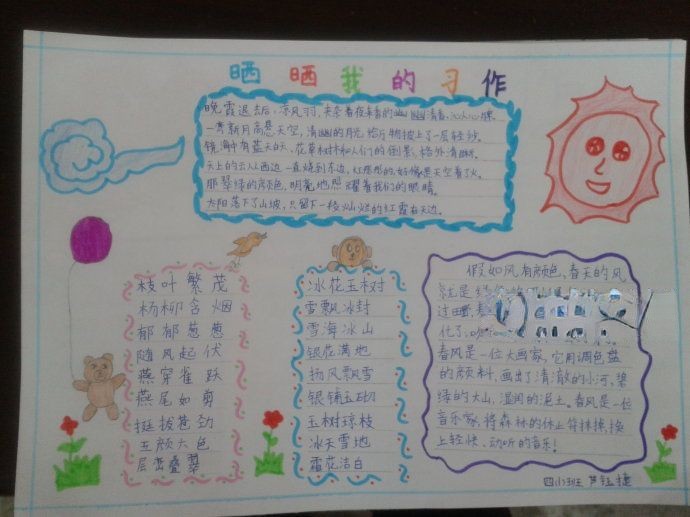 晒晒我的习作
晚霞退去后,凉风习习,夹杂着夜来香的幽幽清香,沁人心脾
一弯新月高悬天空,清幽的月光给万物披上了一层轻纱。
镜湖中有蓝天白天、花草树木和人们的倒影,格外清晰。
天上的云从西边一直烧到东边,红彤彤的,好像是天空着了火。
那翠绿的颜色,明亮地照耀着我们的眼睛。
太阳落下了山坡,只留下一段灿烂的红霞在天边。
枝叶繁茂
杨柳含烟
郁郁葱葱
随风起伏
燕穿雀跃
燕尾如剪
挺拔苍劲
五颜六色
层峦叠翠
冰花玉树
雪飘冰封
雪海冰山
银花满地
扬风飘雪
银铺玉砌
玉树琼枝
冰天雪地
霜花洁白
假如风有颜色,春天的风
就是
过
化了,
春风是一位大画家,它用调色盘
的颜料,画出了清澈的小河,碧
绿的大山,湿润的泥土。春风是一位
音乐家,将森林的休止符抹掉,换
上轻快、动听的音乐!
四(1)班